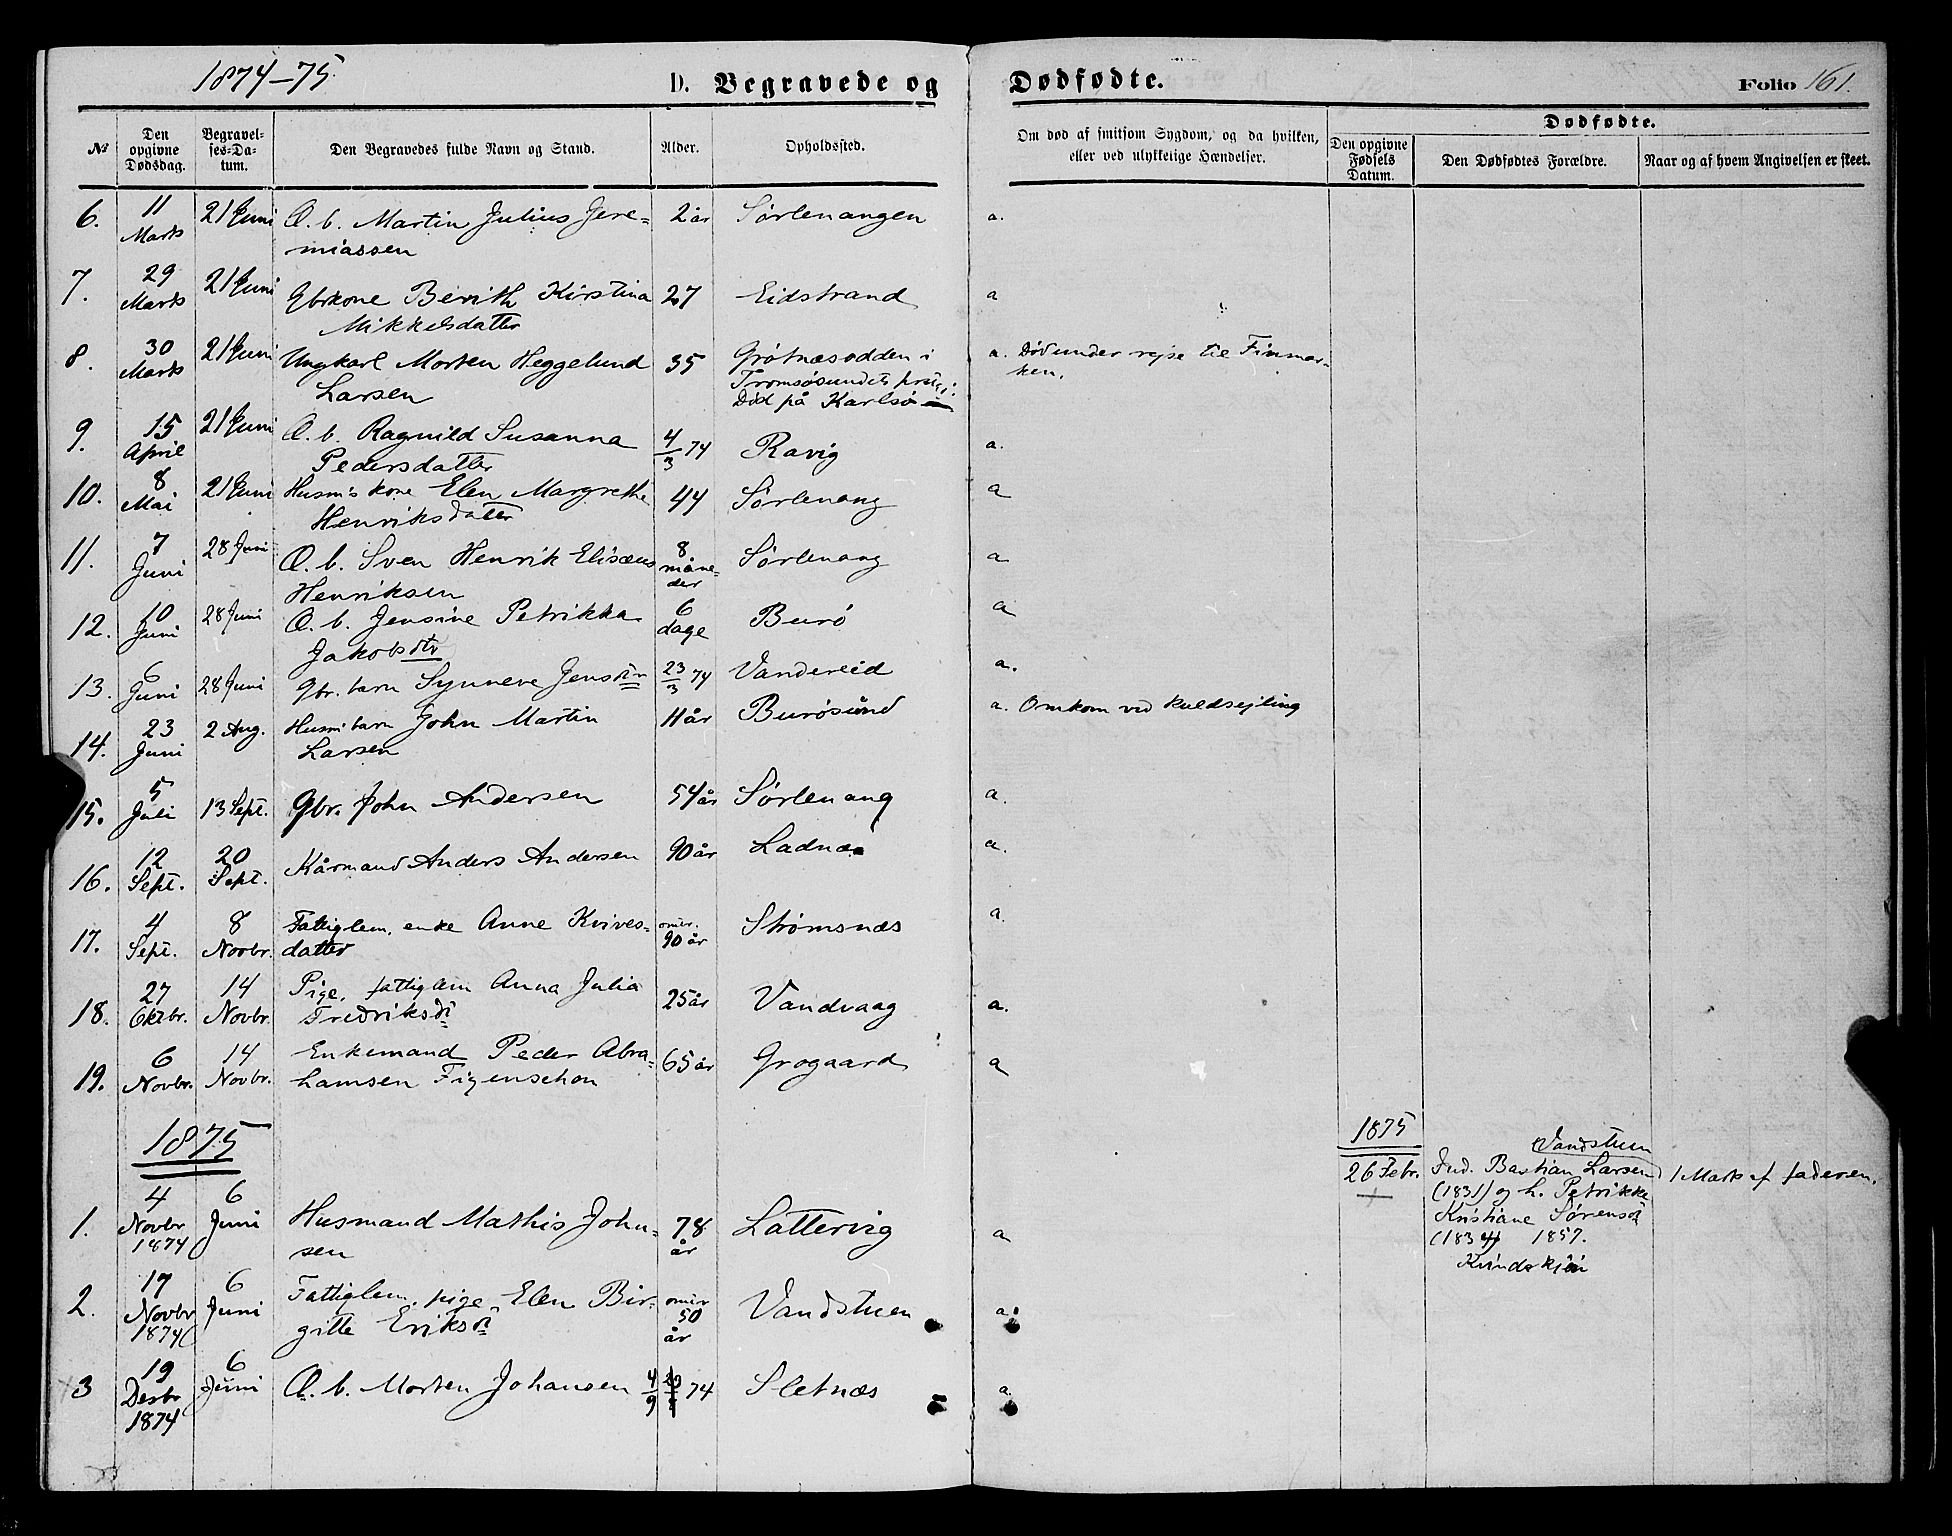 1874–75.
D. Begravede og Dødfødte.
Folio 161.
№
Den opgivne Dødsdag.
Begravel-ses-Da-tum.
Den Begravedes fulde Navn og Stand.
Alder.
Opholdssted.
Om død af smitsom Sygdom, og da hvilken, eller ved ulykkelige Hændelser.
Dødfødte.
Den opgivne Fødsels Datum.
Den Dødfødtes Forældre.
Naar og af hvem Angivelsen er skeet.
6. 11 Marts 21 Juni Æ. b. Martin Julius Jere- 2 år Sørlenangen a.
miassen
7. 29 Marts 21 Juni Gbrkone Berith Kirstina 27 Eidstrand a
Mikkelsdatter
8. 30 Marts 21 Juni Ungkarl Morten Heggelund 35 Grøtnæsodden i a. Død under rejse til Finmar-
Larsen Tromsøsundets præstg: ken.
Død på Karlsø
9. 15 April 21 Juni Æ. b. Ragnild Susanna 4/3 74 Ravig a.
Pedersdatter
10. 8 Mai 21 Juni Husm's kone Elen Margrethe 44 Sørlenang a
Henriksdatter
11. 7 Juni 28 Juni Æ. b. Sven Henrik Elisæus 8 måne-der Sørlenang a
Henriksen
12. 10 Juni 28 Juni Æ. b. Jensine Petrikka 6 dage Burø a
Jakobsdtr
13. 6 Juni 28 Juni Gbr. barn Synneve Jensdtr 23/3 74 Vandereid a.
14. 23 Juni 2 Aug. Husm: barn John Martin 11 år Burøsund a. Omkom ved kuldsejling
Larsen
15. 5 Juli 13 Sept. Gbr. John Andersen 54 år Sørlenang a.
16. 12 Sept. 20 Sept. Kårmand Anders Andersen 90 år Ladnæs a.
17. 4 Sept. 8 Novbr. Fattiglem, enke Anne Kvives- omtr. 90 år Strømsnæs a.
datter
18. 27 Oktbr. 14 Novbr. Pige, fattiglem Anna Julia 25 år Vandvaag a.
Fredriksdt
19. 6 Novbr. 14 Novbr. Enkemand Peder Abra- 65 år Grogaard a
hamsen Figenschou
1875
1. 4 Novbr 1874 6 Juni Husmand Mathis John- 78 år Lattervig a
sen
2. 17 Novbr 1874 6 Juni Fattiglem, pige Elen Bir- omtr 50 år Vandstuen a.
gitte Eriksdt
3 19 Desbr 1874 6 Juni Æ. b. Morten Johansen 4/9 74 Sletnæs a.
1875
Vandstuen
26 Febr. Ind. Bastian Larsen 1 Marts af faderen.
(1831) og h. Petrikke
Kristiane Sørensdt
(1834) 1857.
Kvindekjøn